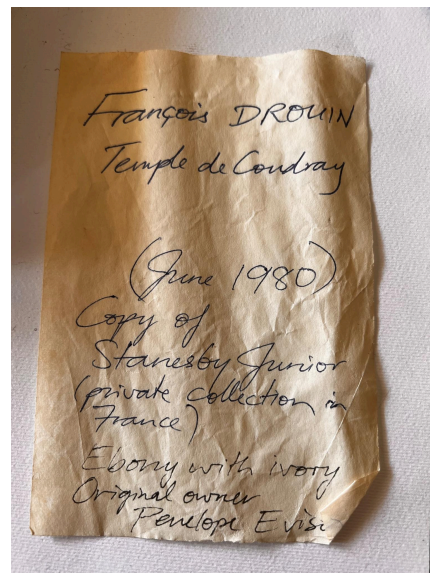 François DROUIN
Temple de Coudray
(June 1980)
Copy of
Stanesby Junior
(private collection in
France)
Ebony with ivory
Original owner
Penelope